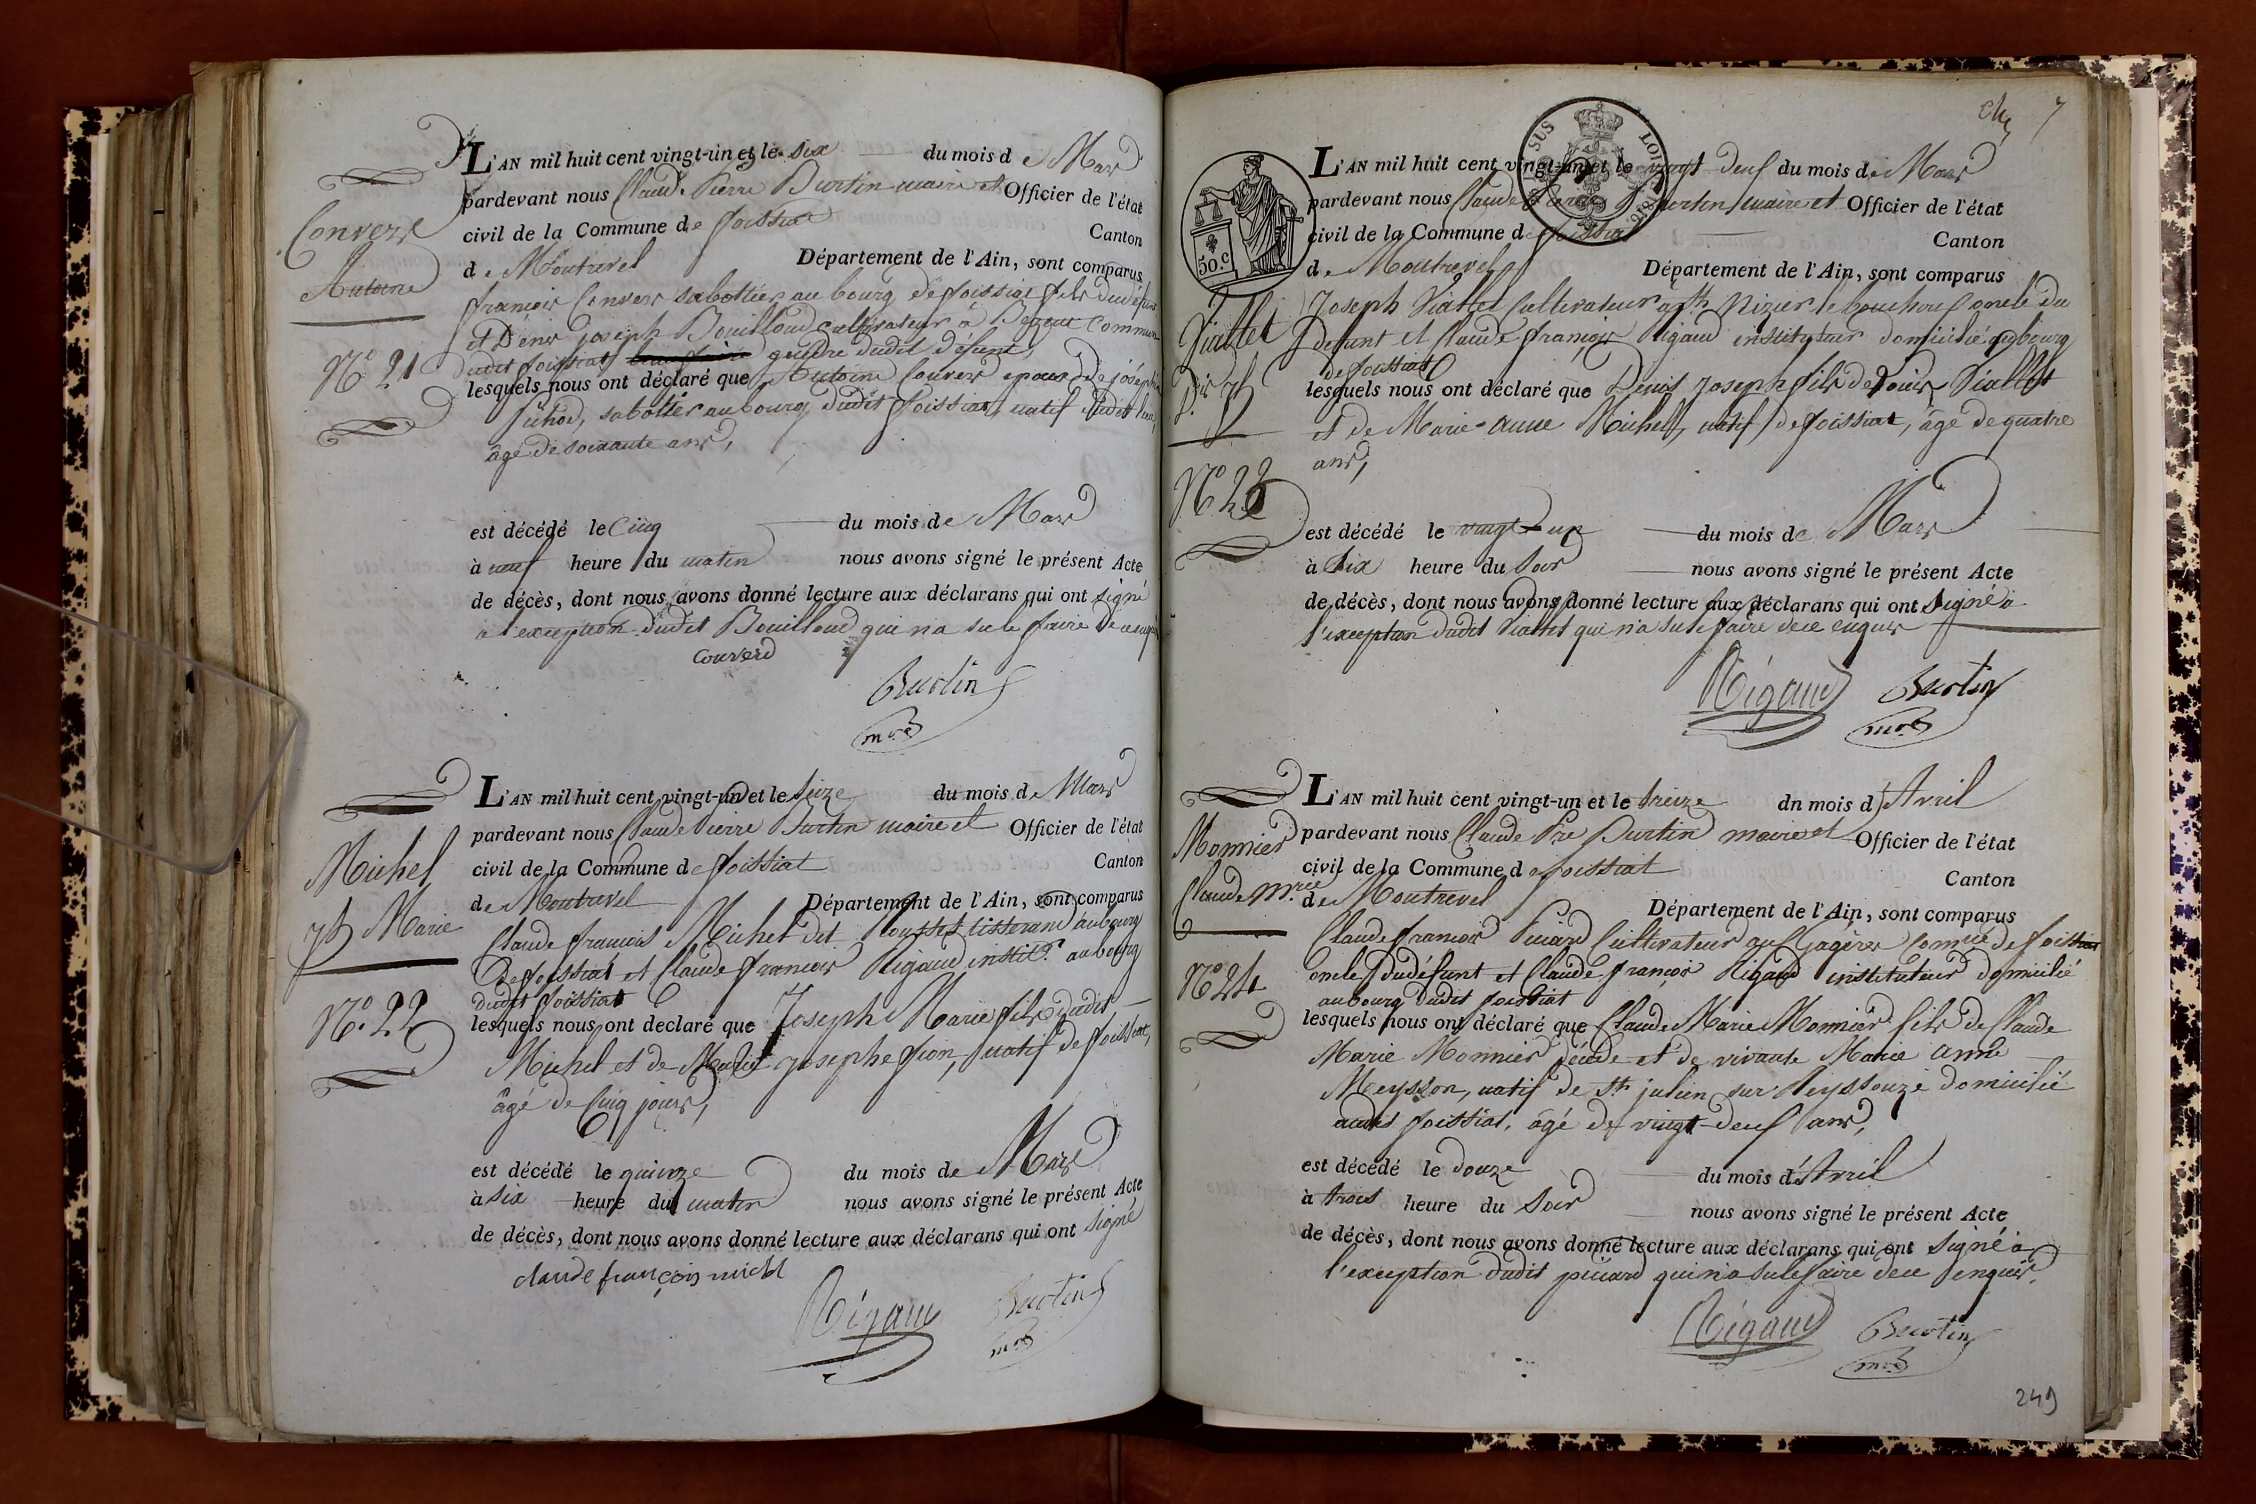 Convers
Antoine
N.o 21
L'AN mil huit cent vingt-un et le six du mois de Mars
pardevant nous Claude Pierre Burtin maire et Officier de l'état
civil de la Commune de foissiat Canton
de Montrevel Département de l'Ain, sont comparus
françois Convers sabottier au bourg de foissiat fils du défunt
et Denis joseph Bouilloud cultivateur à commune
dudit foissiat gendre dudit défunt,
lesquels nous ont déclaré que Antoine Convers epoux de joséphe
sabotier au bourg dudit foissiat, natif dudit lieu,
âgé de soixante ans,
est décédé le Cinq du mois de Mars
à neuf heure du matin nous avons signé le présent Acte
de décès, dont nous avons donné lecture aux déclarans qui ont signé
a l'exception dudit Bouilloud qui n'a su le faire de ce enquis
Converd
Burtin
mre
Michel
jh Marie
N.o 22
L'AN mil huit cent vingt-un et le seize du mois de Mars
pardevant nous Claude Pierre Burtin maire et Officier de l'état
civil de la Commune de foissiat Canton
de Montrevel Département de l'Ain, sont comparus
Claude françois Michel dit tisserand au bourg
de foissiat et Claude françois Rigaud instit.r au bourg
dudit foissiat
lesquels nous ont declaré que Joseph Marie fils dudit
Michel et de Marie Josephe fion, natif de foissiat,
âgé de Cinq jours,
est décédé le quinze du mois de Mars
à six heure du matin nous avons signé le présent Acte
de décès, dont nous avons donné lecture aux déclarans qui ont signé
claude françois michl
Rigaud Burtin
mre
7
SUS LOI 1816.
50.c
Viallet
D.is jh
N.o 23
L'AN mil huit cent vingt-un et le vingt-deuf du mois de Mars
pardevant nous Claude Pierre Burtin maire et Officier de l'état
civil de la Commune de foissiat Canton
de Montrevel Département de l'Ain, sont comparus
Joseph Viallet Cultivateur à St. Nizier le bouchoux oncle du
defunt et Claude françois Rigaud instituteur domicilié au bourg
de foissiat
lesquels nous ont déclaré que Denis Joseph fils de Louis Viallet
et de Marie-anne Michel, natif de foissiat, âgé de quatre
ans,
est décédé le vingt-un du mois de Mars
à Six heure du Soir nous avons signé le présent Acte
de décès, dont nous avons donné lecture aux déclarans qui ont Signé à
l'exception dudit Viallet qui n'a su le faire de ce enquis
Rigaud Burtin
mre
Monnier
Claude M.rie
N.o 24
L'AN mil huit cent vingt-un et le treize dn mois d'Avril
pardevant nous Claude Pre Burtin maire et Officier de l'état
civil de la Commune de foissiat Canton
de Montrevel Département de l'Ain, sont comparus
Claude françois Picard Cultivateur Com.ne de foissiat
oncle du défunt et Claude françois Rigaud instituteur domicilié
au bourg dudit foissiat
lesquels nous ont déclaré que Claude Marie Monnier fils de Claude
Marie Monnier et de vivante Marie anne
Meysson, natif de St. julien sur Reyssouze domicilié
audit foissiat, âgé de vingt-deuf ans,
est décédé le douze du mois d'Avril
à trois heure du Soir nous avons signé le présent Acte
de décès, dont nous avons donné lecture aux déclarans qui ont Signé à
l'exception dudit picard qui n'a su le faire de ce enquis.
Rigaud Burtin
mre
249